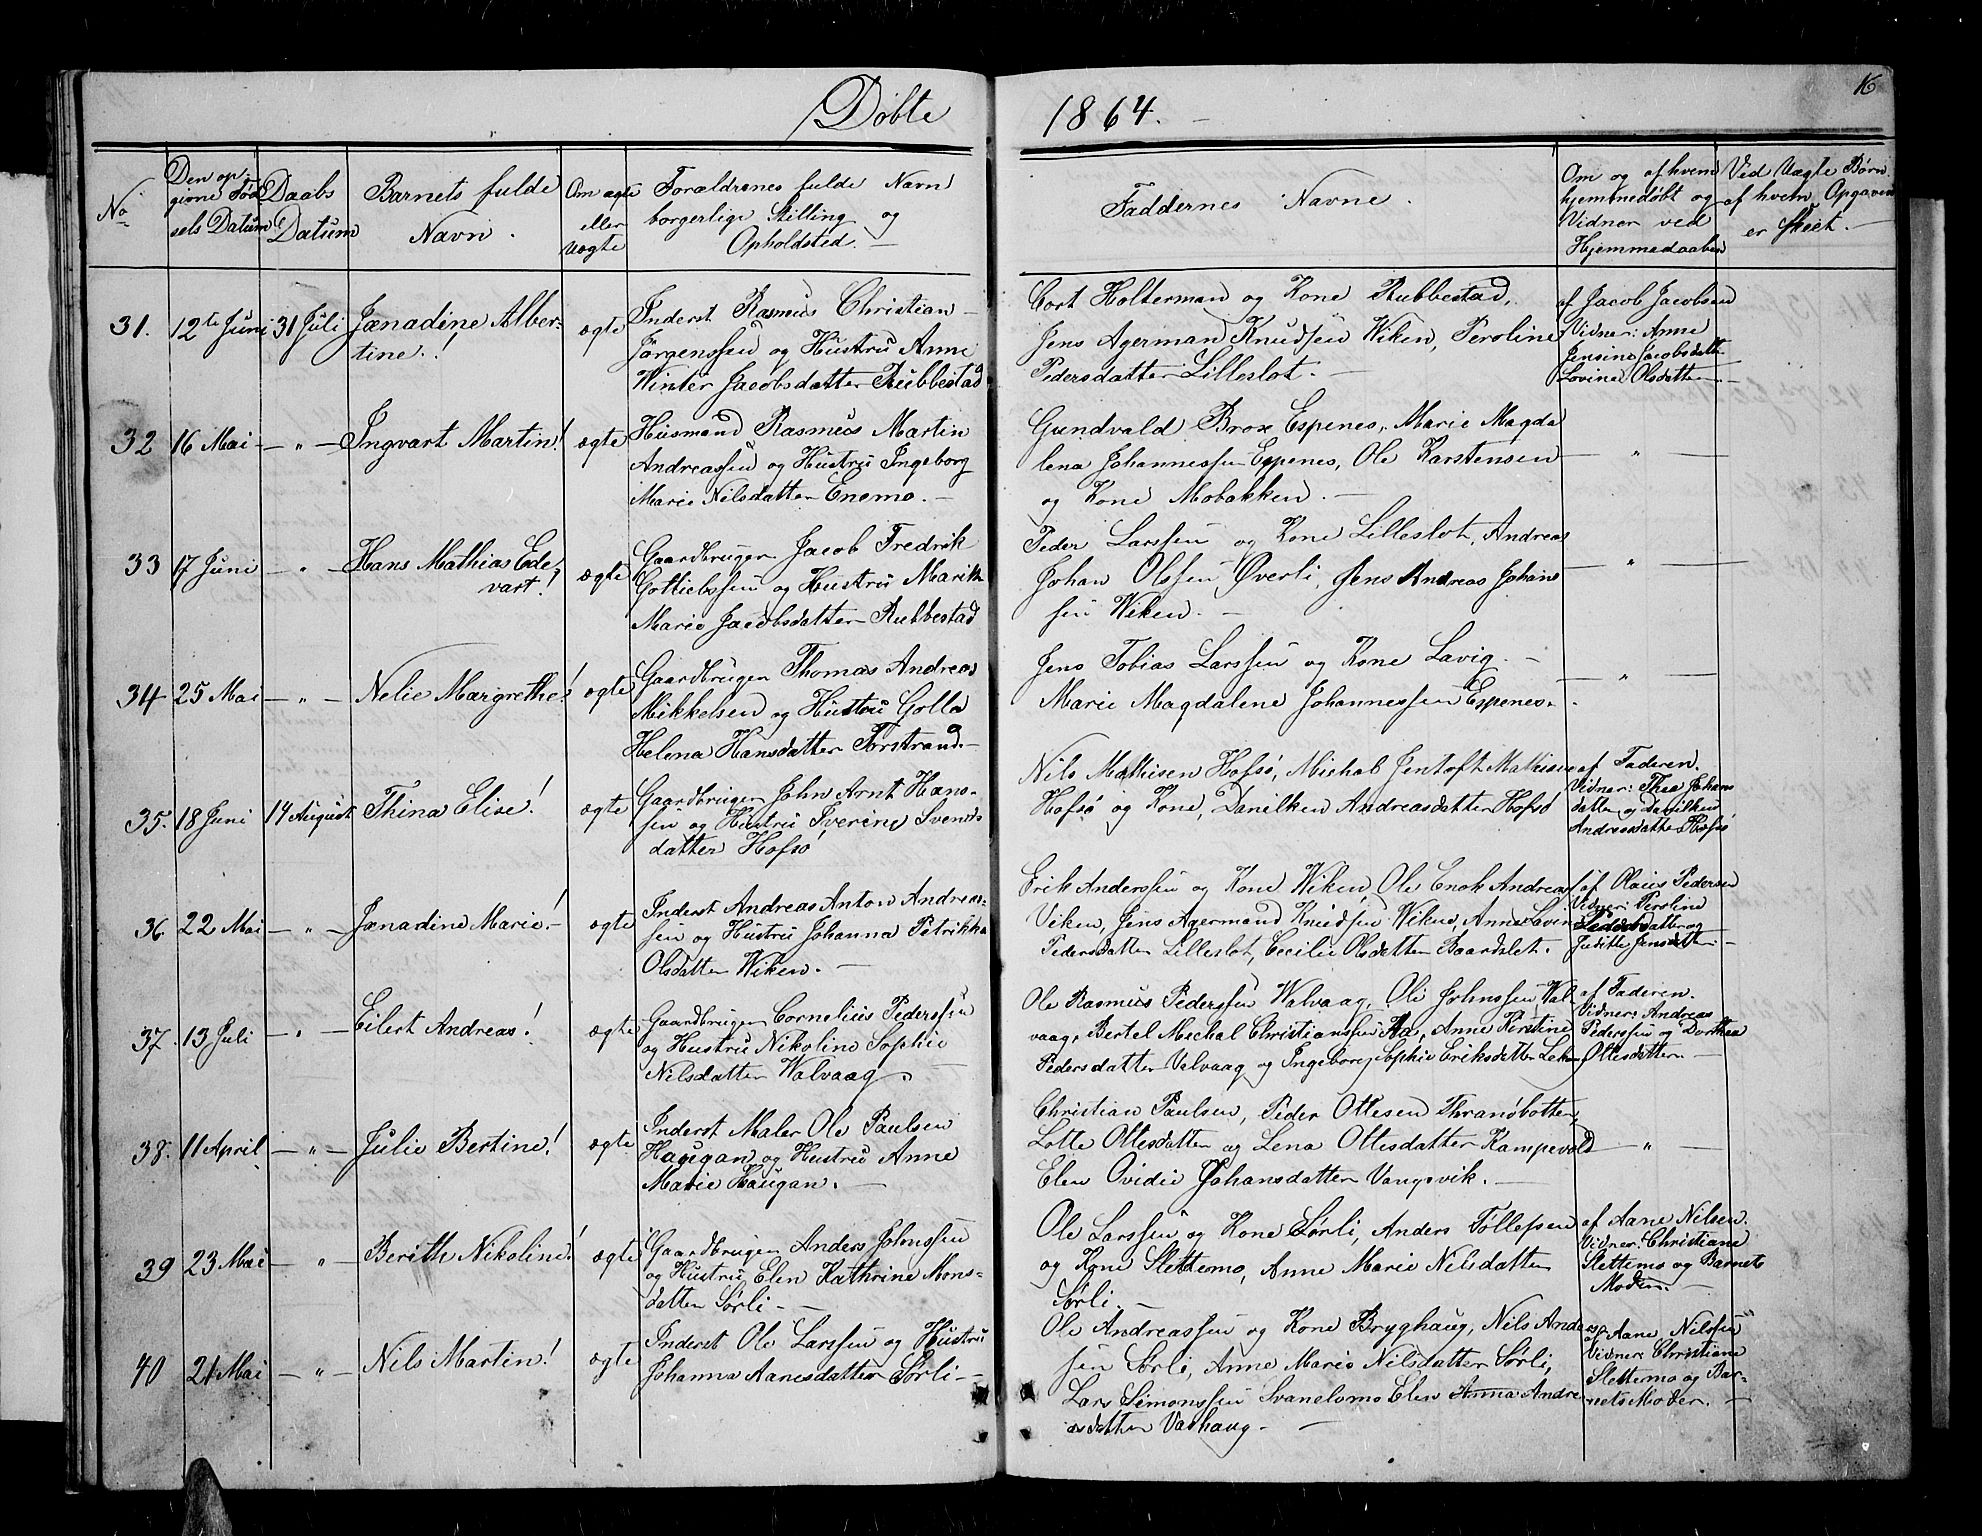 Døbte
1864.
16
No
Den op-
givne Fød
sels Datum
Daabs
Datum
Barnets fulde
Navn.
Om ægte
eller
uægte
Forældrenes fulde Navn
borgerlige Stilling og
Opholdsted.
Faddernes Navne.
Om og af hvem
hjemmedøbt og
Vidner ved
Hjemmedaaben
Ved Uægte Børn
af hvem Opgaven
er skeet.
31. 12te Juni 31 Juli Jænadine Alber-
tine!
ægte
Inderst Rasmus Christian
Jørgenssen og Hustru Anne
Winter Jacobsdatter Rubbestad
Cort Holterman og Kone Rubbestad,
Jens Agerman Knudsen Wiken, Peroline
Pedersdatter Lilleslot.
af Jacob Jacobsen
Vidner: Anne
Jensine Jacobsdatter
Lovine Olsdatter
32 16 Mai — " — Ingvart Martin!
ægte
Husmand Rasmus Martin
Andreassen og Hustru Ingeborg
Marie Nilsdatter Enemo.
Gundvald Brox Espenes, Marie Magda
lena Johannessen Espenes, Ole Karstensen
og Kone Mobakken.
— " —
33 17 Juni — " — Hans Mathias Ede-
vart!
ægte
Gaardbruger Jacob Fredrik
Gottliebssen og Hustru Marith
Marie Jacobsdatter Rubbestad
Peder Larssen og Kone Lilleslot, Andreas
Johan Olssen Øverli, Jens Andreas Johans
sen Wiken.
— " —
34 25 Mai — " — Nelie Margrethe!
ægte
Gaardbruger Thomas Andreas
Mikkelsen og Hustru Golla
Helena Hansdatter Forstrand.
Jens Tobias Larssen og Kone Lavig.
Marie Magdalene Johannessen Espenes.
— " —
35. 18 Juni 14 August Thina Elise!
ægte
Gaardbruger John Arnt Hans-
sen og Hustru Iverine Svends
datter Hofsø
Nils Mathisen Hofsø, Michal Jentoft Mathisen
Hofsø og Kone, Danilken Andreasdatter Hofsø
af Faderen.
Vidner: Thea Johans
datter og Danilken
Andreasdatter Hofsø
36 22 Mai — " — Jænadine Marie!
ægte
Inderst Andreas Anton Andreas-
sen og Hustru Johanna Petrikka
Olsdatter Wiken.
Erik Anderssen og Kone Wiken, Ole Enok Andreas
Viken, Jens Agermand Knudsen Wiken, Anne Lovine
Pedersdatter Lilleslot, Cecilie Olsdatter Baardslet.
af Olaus Pedersen
Vidner: Peroline
Pedersdatter og
Judithe Jensdatter.
37. 13 Juli — " — Eilert Andreas!
ægte
Gaardbruger Cornelius Pederssen
og Hustru Nikoline Sophie
Nilsdatter Walvaag.
Ole Rasmus Pederssen Walvaag, Ole Johnssen Wal-
vaag, Bertel Mechal Christianssen Aa, Anne Kirstine
Pedersdatter Valvaag og Ingeborg Sophie Eriksdatter
af Faderen.
Vidner: Andreas
Pederssen og Dorthea
Ottesdatter.
38. 11 April — " — Julie Bertine!
ægte
Inderst Maler Ole Paulsen
Haugan og Hustru Anne
Marie Haugan.
Christian Paulsen, Peder Ottesen Thranøbotten,
Lotte Ottesdatter og Lena Ottesdatter Kampevold
Elen Ovidie Johansdatter Vangsvik.
— " —
39 23 Mai — " — Berith Nikoline!
ægte
Gaardbruger Anders Johnssen
og Hustru Elen Kathrine Mons-
datter Sørli
Ole Larssen og Kone Sørli, Anders Tollefsen
og Kone Slettemo, Anne Marie Nilsdatter
Sørli.
af Aane Nilsen.
Vidner: Christiane
Slettemo og Barnets
Moder.
40 21 Mai — " — Nils Martin!
ægte
Inderst Ole Larssen og Hustru
Johanna Aanesdatter Sørli
Ole Andreassen og Kone Bryghaug, Nils Andreas
sen Sørli, Anne Marie Nilsdatter Sørli,
Lars Simonssen Svanelomo Elen Anna Andre
asdatter Vashaug.
af Aane Nilssen
Vidner: Christiane
Slettemo og Bar-
nets Moder.